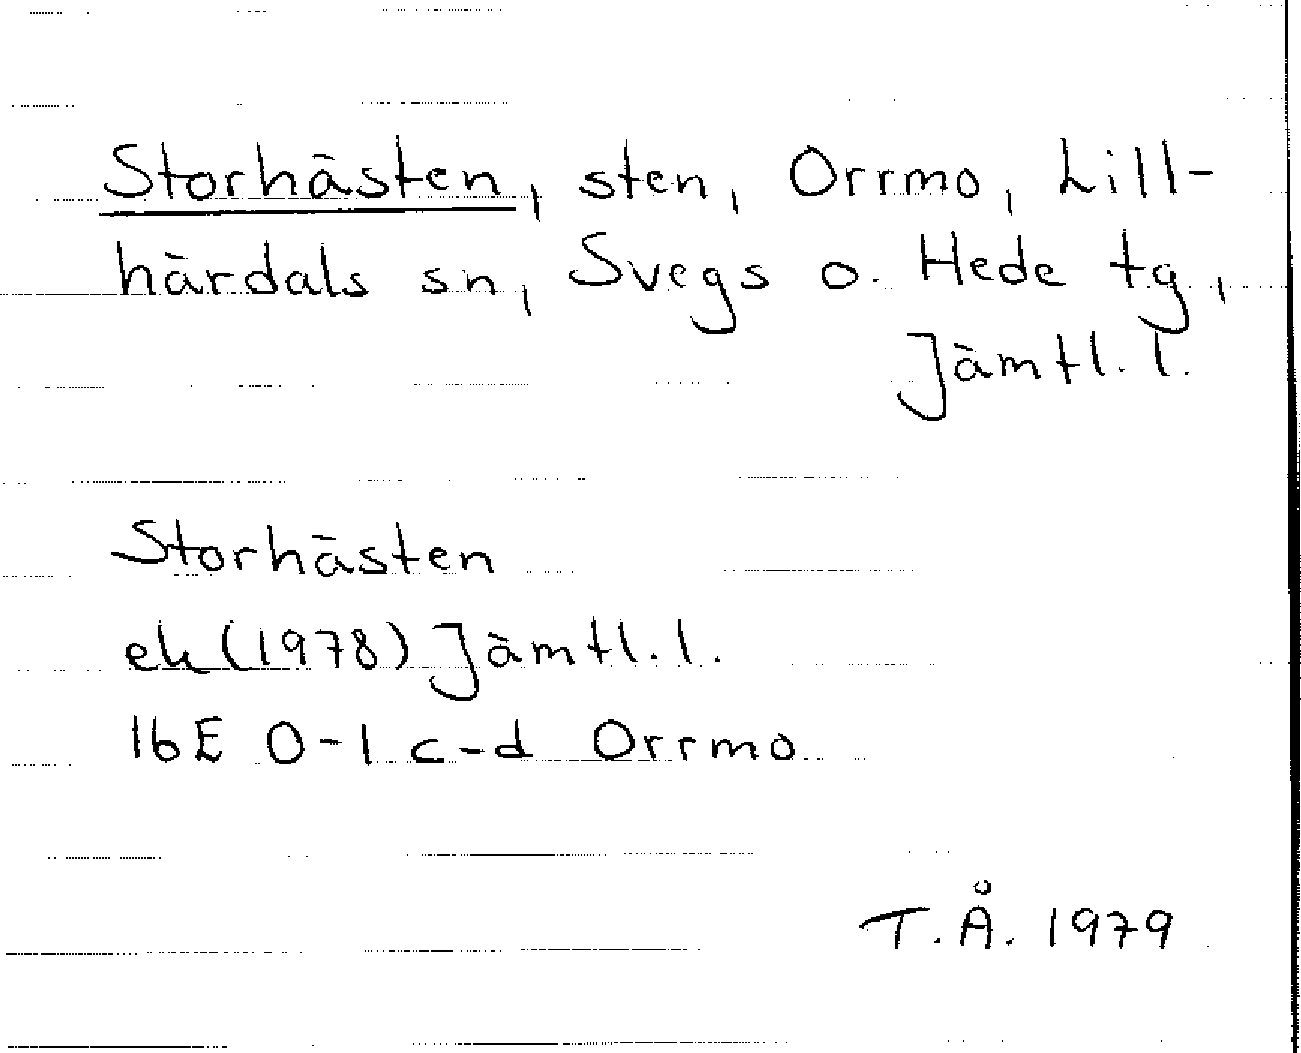 Storhästen, sten, Orrmo, Lill-
härdals sn, Svegs o. Hede tg,
Jämtl. l.
Storhästen
ek (1978) Jämtl. l.
16E 0-1 c-d Orrmo
T.Å. 1979